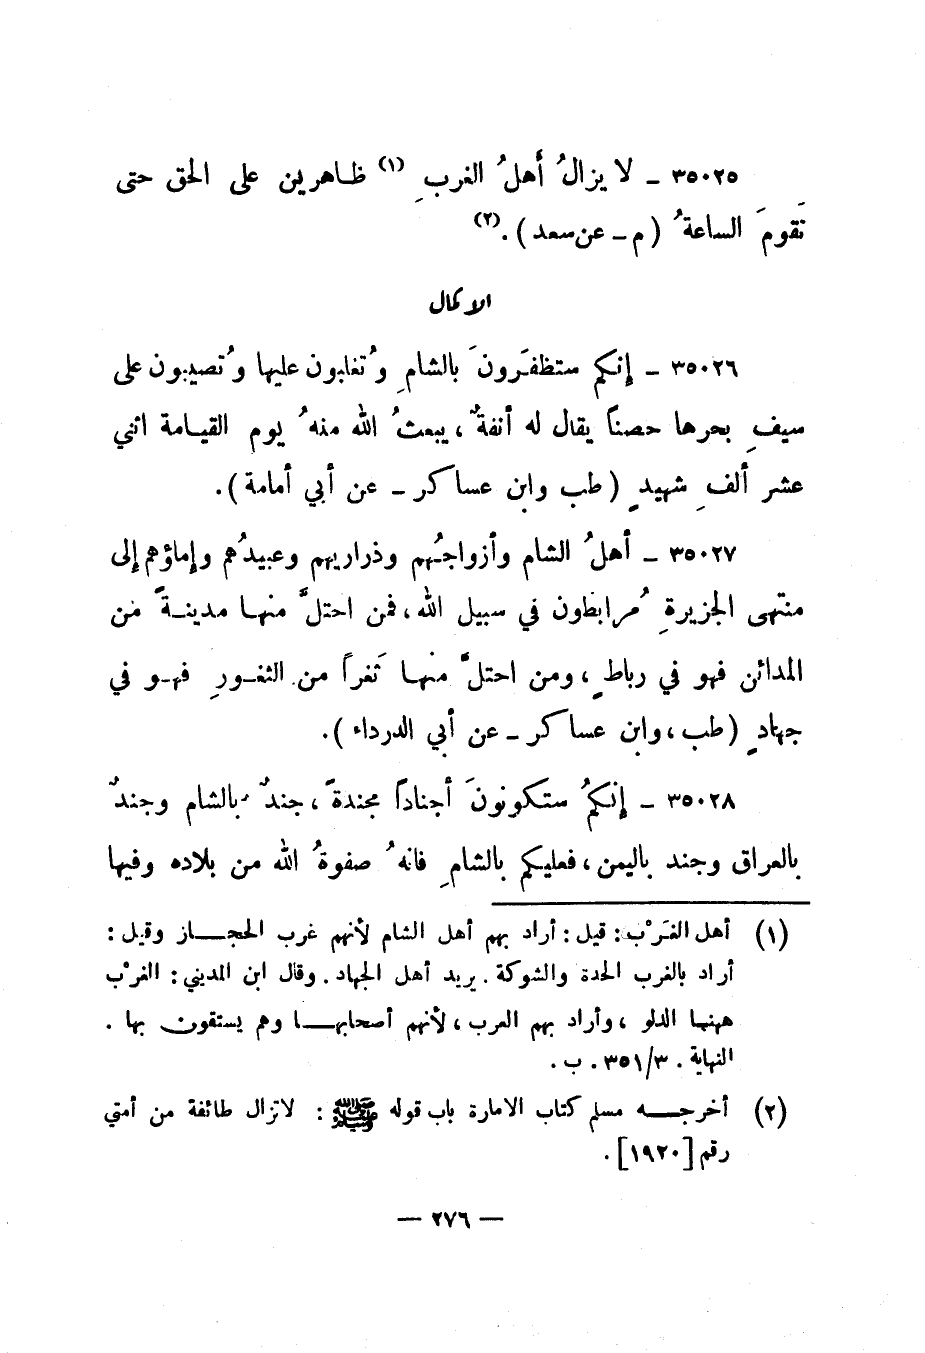 ٣٥٠٢٥ ـ لا يزالُ أهلُ الغربِ (١) ظـاهرين على الحق حتى
تَقومَ الساعةُ (م ـ عن سعد).(٢)
الاكمال
٣٥٠٢٦ ـ إنكم ستظفَرونَ بالشامِ وتُغلبون عليها وتُصيبون على
سيفِ بحرها حصناً يقال له أنفةٌ، يبعثُ الله منهُ يوم القيـامة اثني
عشر ألفِ شهيدٍ (طب وابن عساكر ـ عن أبي أمامة).
٣٥٠٢٧ ـ أهلُ الشام وأزواجُهم وذراريهم وعبيدُهم وإماؤهم إلى
منتهى الجزيرةِ مُرابطون في سبيل الله، فمن احتلَّ منهـا مدينـةً من
المدائن فهو في رباطٍ، ومن احتلَّ منهـا ثَغراً من الثغـورِ فهـو في
جهادٍ (طب، وابن عساكر ـ عن أبي الدرداء).
٣٥٠٢٨ ـ إنكمُ ستكونونَ أجناداً مجندةً، جندٌ بالشام وجندٌ
بالعراق وجند باليمن، فعليكم بالشامِ فانهُ صفوةُ الله من بلاده وفيها
(١) أهل الغَرْب: قيل: أراد بهم أهل الشام لأنهم غرب الحجـــاز وقيل:
أراد بالغرب الحدة والشوكة. يريد أهل الجهاد. وقال ابن المديني: الغرْب
ههنا الدلو، وأراد بهم العرب، لأنهم أصحابهـــا وهم يستقون بها.
النهاية. ٣/٣٥١. ب.
(٢) أخرجـــه مسلم كتاب الامارة باب قوله ﷺ: لاتزال طائفة من أمتي
رقم [١٩٢٠].
— ٢٧٦ —